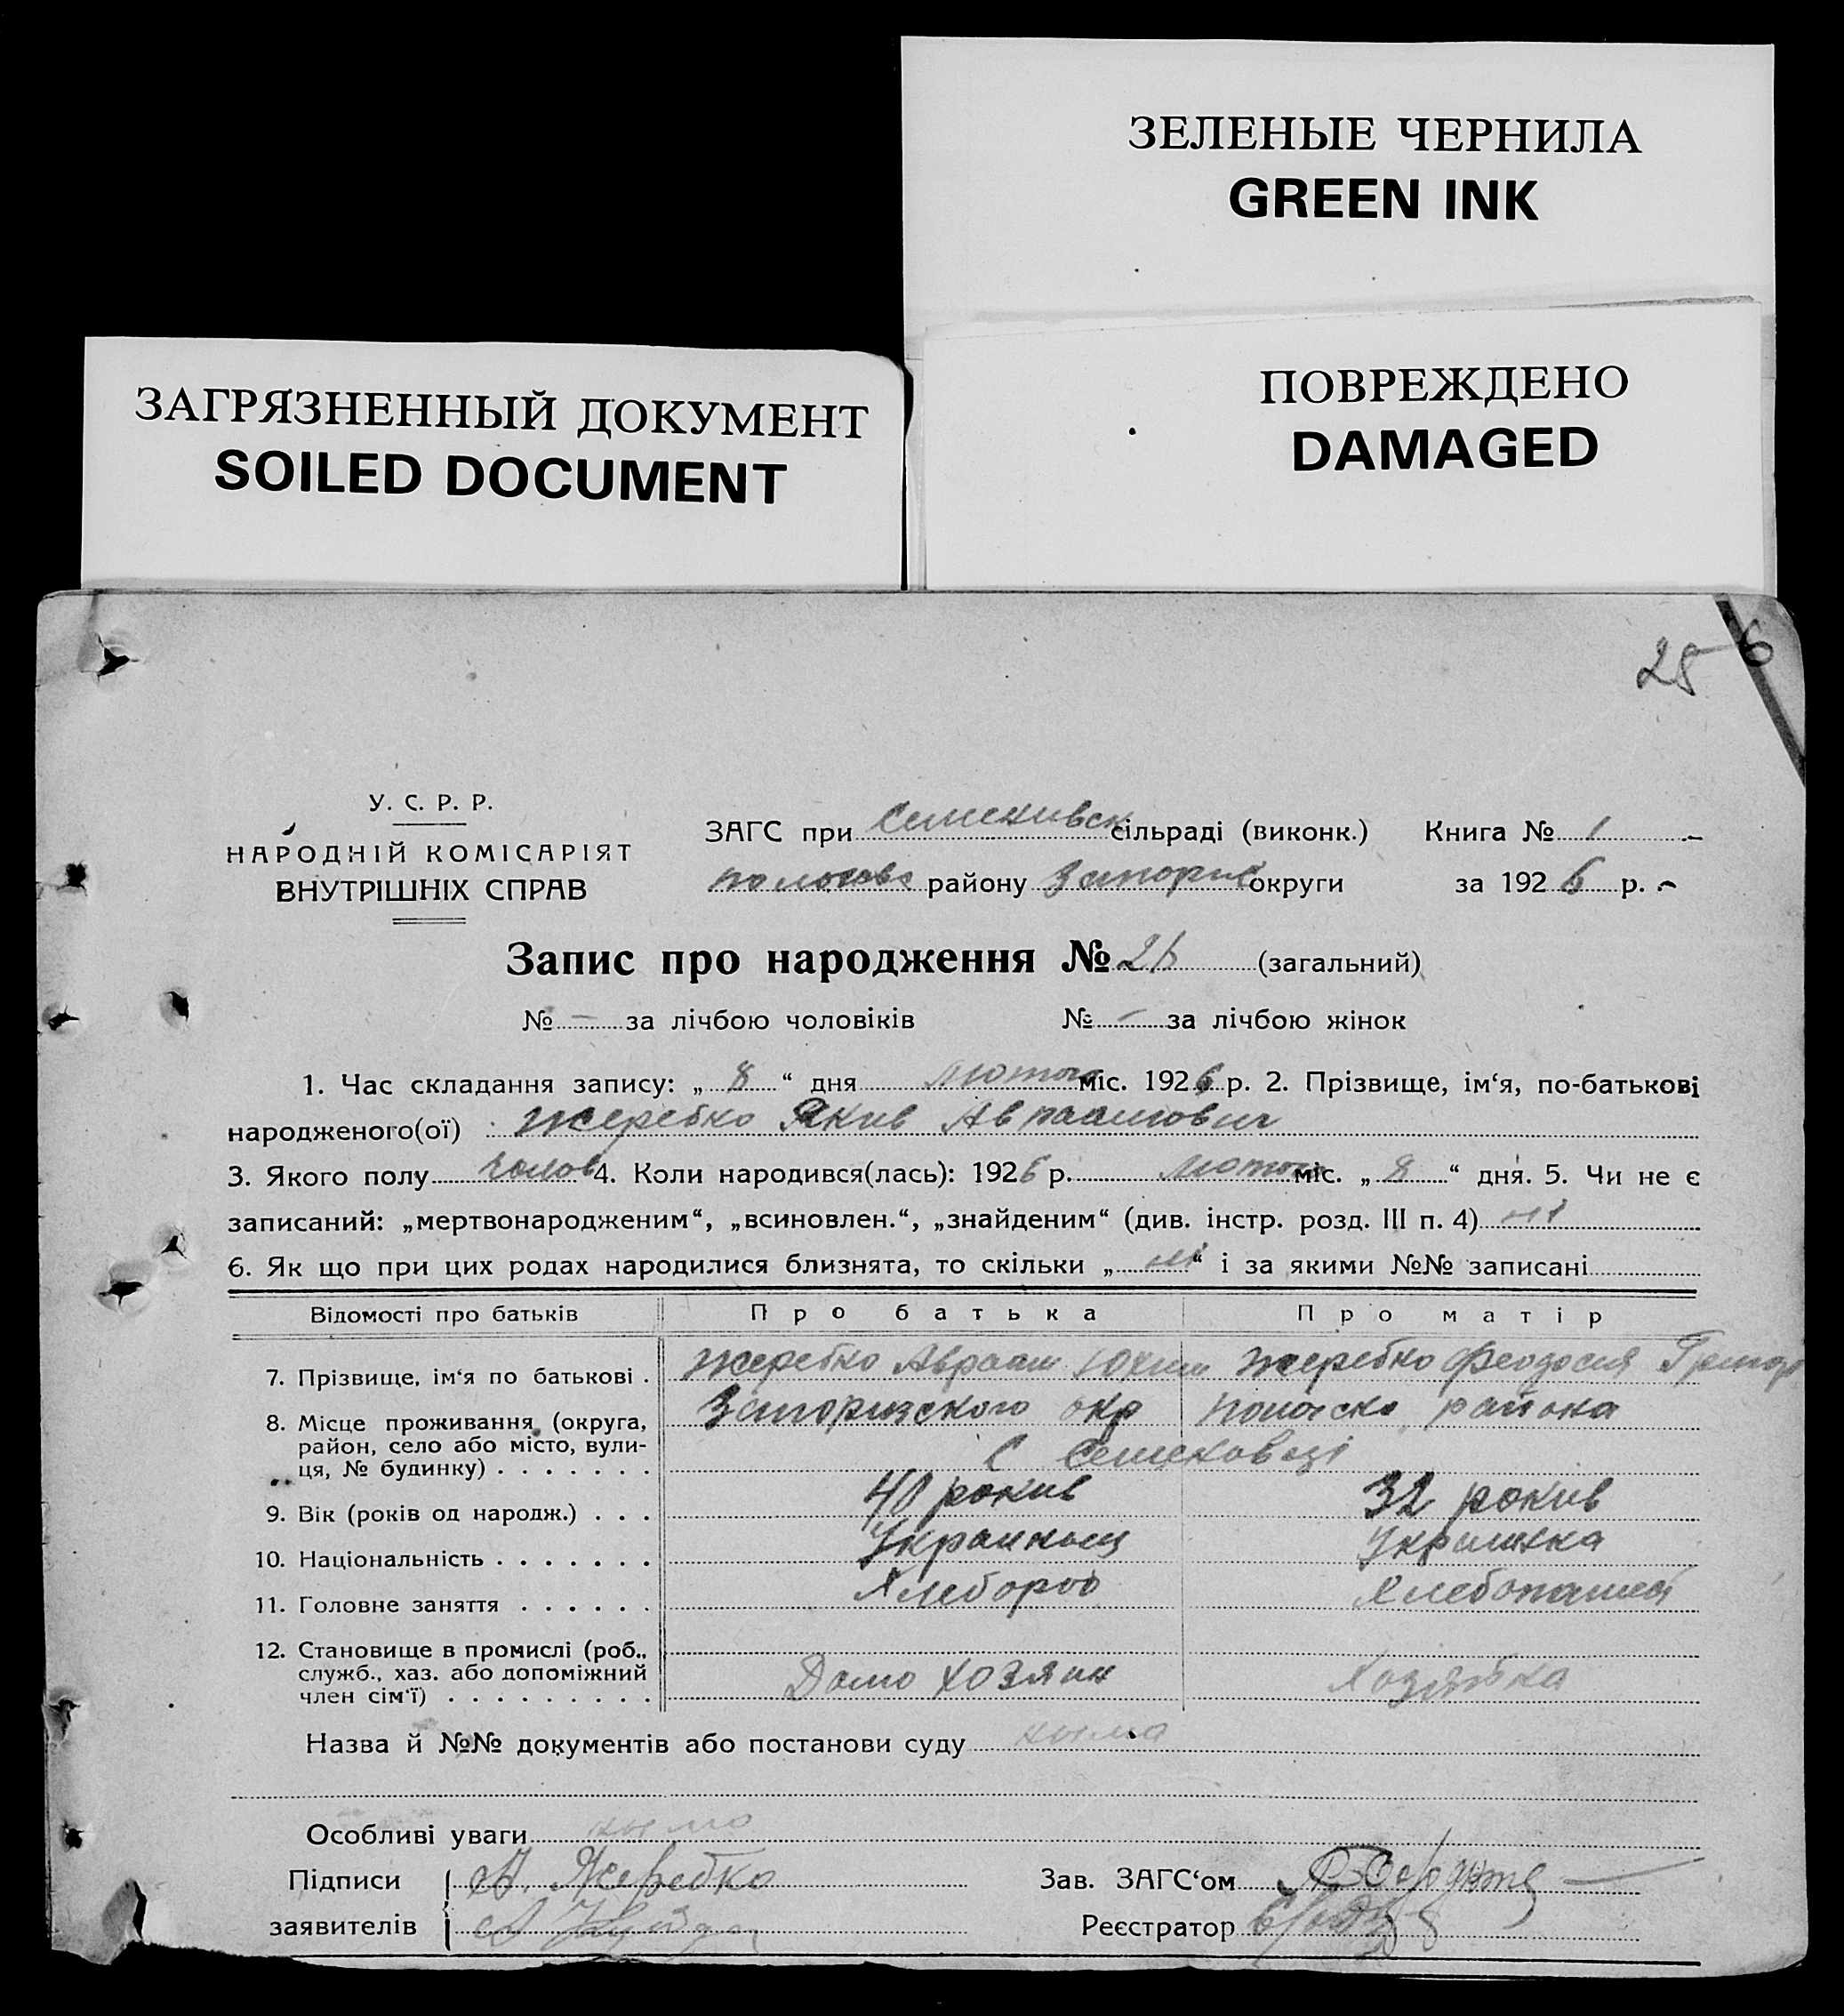 ЗЕЛЕНЫЕ ЧЕРНИЛА
GREEN INK
ПОВРЕЖДЕНО
DAMAGED
ЗАГРЯЗНЕННЫЙ ДОКУМЕНТ
SOILED DOCUMENT
25 6
У. С. Р. Р.
НАРОДНІЙ КОМІСАРІЯТ
ВНУТРІШНІХ СПРАВ
ЗАГС при Семенивск сільраді (виконк.) Книга № 1
району Запориз округи за 1926 р.
Запис про народження № (загальний)
№ - за лічбою чоловіків № - за лічбою жінок
1. Час складання запису: „ 8 “ дня лютого міс. 1926 р. 2. Прізвище, ім‘я, по-батькові
народженого(ої) Жеребко Якив Авраамович
3. Якого полу чолов 4. Коли народився(лась): 1926 р. лютого міс. „ 8 “ дня. 5. Чи не є
записаний: „мертвонародженим“, „всиновлен.“, „знайденим“ (див. інстр. розд. III п. 4) ні
6. Як що при цих родах народилися близнята, то скільки „ ні “ і за якими №№ записані
Відомості про батьків Про батька Про матір
7. Прізвище, ім‘я по батькові . Жеребко Авраам Юхим Жеребко Феодосия Григор
8. Місце проживання (округа, Запоризского окр района
район, село або місто, вули-
ця, № будинку) . . . . . . . С
9. Вік (років од народж.) . . . 40 рокив 32 рокив
10. Національність . . . . . . . Украинец Украинка
11. Головне заняття . . . . . . Хлебороб
12. Становище в промислі (роб.,
служб., хаз. або допоміжний Домо хозяин Хозяйка
член сім‘ї) . . . . . . . . .
Назва й №№ документів або постанови суду ныма
Особливі уваги ныма
Підписи А. Жеребко Зав. ЗАГС‘ом
заявителів Реєстратор